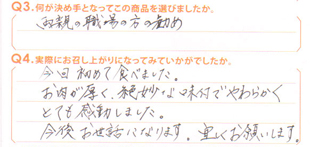 Q3.何が決め手となってこの商品を選びましたか。
両親の職場の方の勧め
Q4.実際にお召し上がりになってみていかがでしたか。
今回初めて食べました。
お肉が厚く、絶妙な味付でやわらかく
とても感動しました。
今後お世話になります。宜しくお願いします。